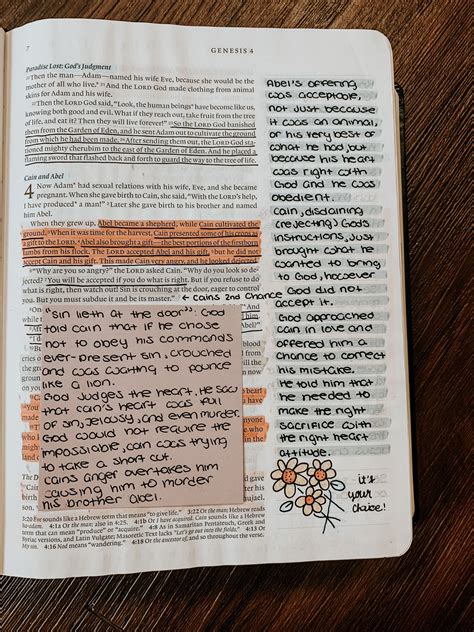 7
GENESIS 4
Paradise Lost: God's Judgment
20Then the man—Adam—named his wife Eve, because she would be the
mother of all who live.* 21And the LORD God made clothing from animal
skins for Adam and his wife.
22Then the LORD God said, "Look, the human beings* have become like us,
knowing both good and evil. What if they reach out, take fruit from the tree
of life, and eat it? Then they will live forever!" 23So the LORD God banished
them from the Garden of Eden, and he sent Adam out to cultivate the ground
from which he had been made. 24After sending them out, the LORD God
stationed mighty cherubim to the east of the Garden of Eden. And he placed a
flaming sword that flashed back and forth to guard the way to the tree of life.
Cain and Abel
4 Now Adam* had sexual relations with his wife, Eve, and she became
pregnant. When she gave birth to Cain, she said, "With the LORD's help,
I have produced* a man!" 2Later she gave birth to his brother and named
him Abel.
When they grew up, Abel became a shepherd, while Cain cultivated the
ground. 3When it was time for the harvest, Cain presented some of his crops as
a gift to the LORD. 4Abel also brought a gift—the best portions of the firstborn
lambs from his flock. The LORD accepted Abel and his gift, 5but he did not
accept Cain and his gift. This made Cain very angry, and he looked dejected.
6"Why are you so angry?" the LORD asked Cain. "Why do you look so de-
jected? 7You will be accepted if you do what is right. But if you refuse to do
what is right, then watch out! Sin is crouching at the door, eager to control
you. But you must subdue it and be its master."
← Cains 2nd Chance
"Sin lieth at the door". God
told cain that if he chose
not to obey his commands
ever-present sin, crouched
and was waiting to pounce
like a lion.
God judges the heart, He saw
that cain's heart was full
of sin, jelousy, and even murder.
God would not require the
impossiable, cain was trying
to take a short cut.
cains anger overtakes him
causing him to murder
his brother Abel.
Abel's offering
was acceptable,
not just because
it was an animal,
or his very best of
what he had, but
because his heart
was right with
God and he was
obedient.
cain, disdaining
(rejecting) God's
instructions, just
brought what he
wanted to bring
to God, however
God did not
accept it.
God approached
cain in love and
offered him a
chance to correct
his mistake.
He told him that
he needed to
make the right
sacrifice with
the right heart
attitude.
it's
your
choice!
3:20 Eve sounds like a Hebrew term that means "to give life." 3:22 Or the man; Hebrew
4:1a Or the man; also in 4:25. 4:1b Or I have acquired. Cain sounds like a Hebrew
term that can mean "produce" or "acquire." 4:8 As in Samaritan Pentateuch, Greek and
Syriac versions, and Latin Vulgate; Masoretic Text lacks "Let's go out into the fields."
4:16 Nod means "wandering." 4:18 Or the ancestor of, and so throughout the verse.